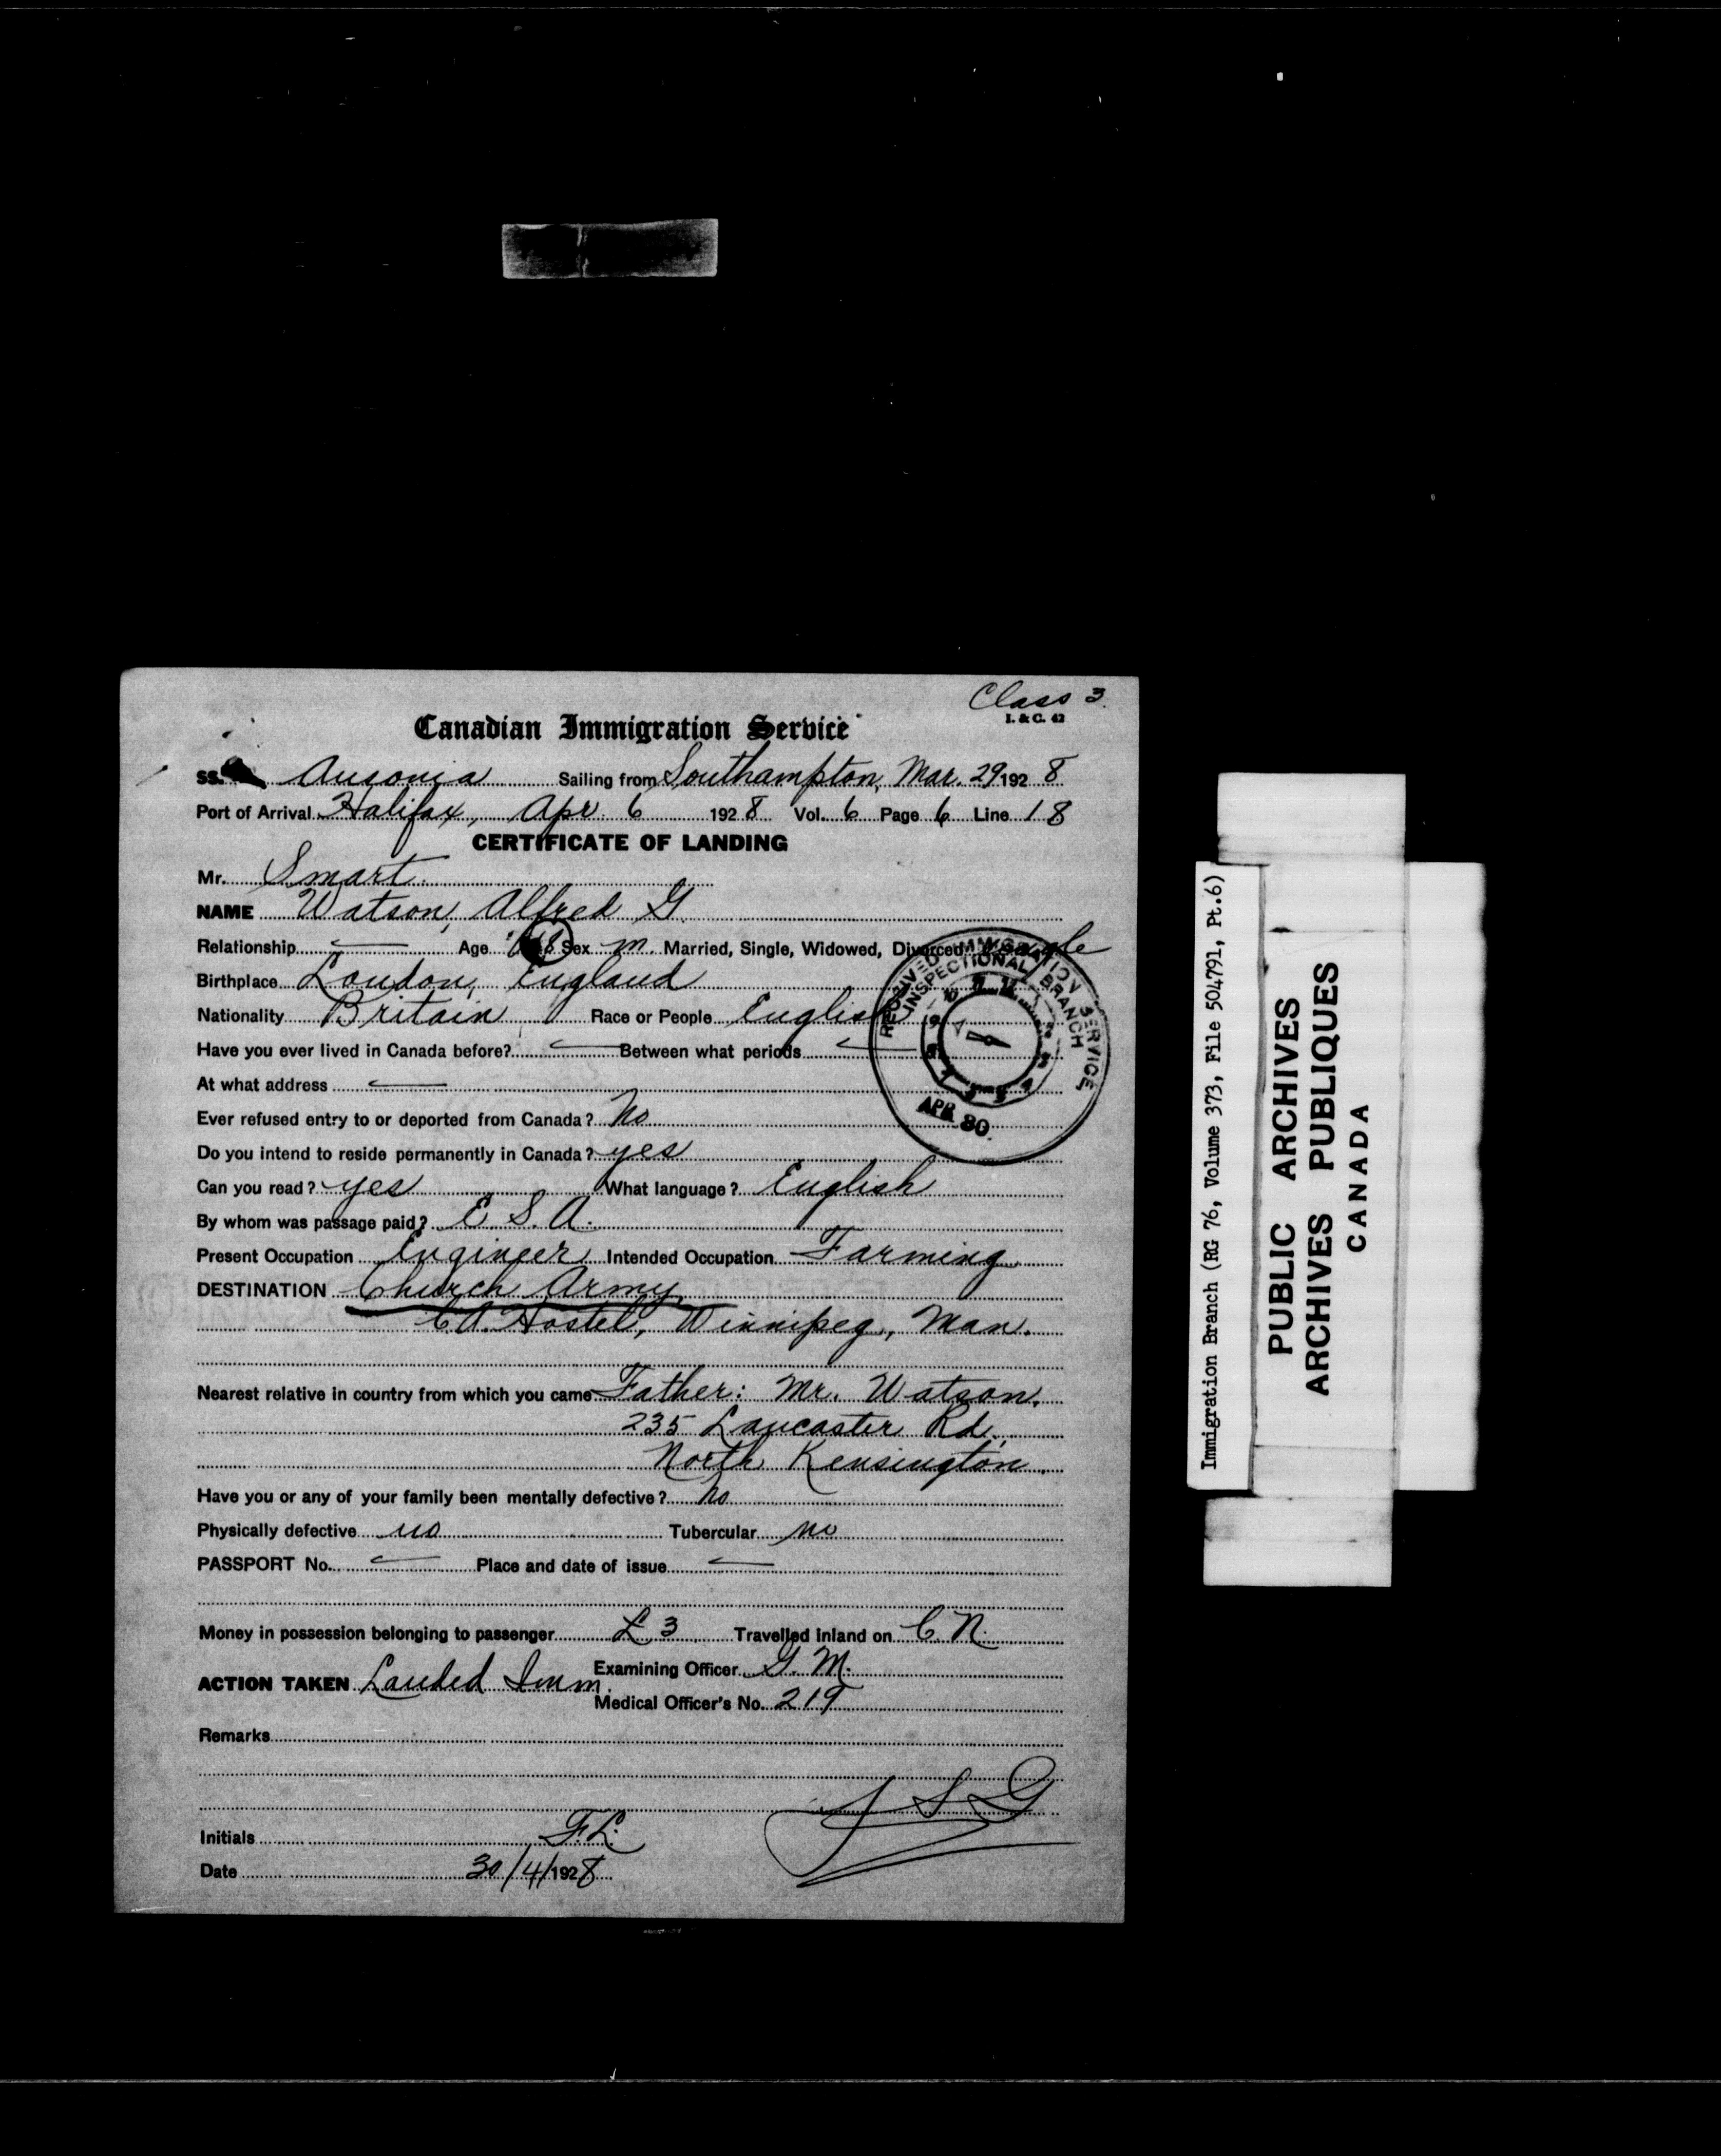 Class 3.
I. & C. 42
Canadian Immigration Service
SS. Ausonia Sailing from Southampton, Mar. 29 1928
Port of Arrival Halifax, Apr. 6 1928 Vol. 6 Page 6 Line 18
CERTIFICATE OF LANDING
Mr. Smart
NAME Watson, Alfred G.
Relationship — Age 18 Sex m. Married, Single, Widowed, Divorced Single
Birthplace London, England
Nationality Britain Race or People English
Have you ever lived in Canada before? — Between what periods —
At what address —
Ever refused entry to or deported from Canada? No
Do you intend to reside permanently in Canada? yes
Can you read? yes What language? English
By whom was passage paid? E S. A.
Present Occupation Engineer Intended Occupation Farming
DESTINATION Church Army
C.A. Hostel, Winnipeg, Man.
Nearest relative in country from which you came Father: Mr. Watson.
235 Lancaster Rd.
North Kensington.
Have you or any of your family been mentally defective? No
Physically defective no Tubercular no
PASSPORT No. — Place and date of issue —
Money in possession belonging to passenger £3 Travelled inland on C. N.
Examining Officer G. M.
ACTION TAKEN Landed Imm.
Medical Officer's No. 219
Remarks
Initials F.L.
Date 30/4/1928
RECEIVED IMMIGRATION SERVICE
INSPECTIONAL BRANCH
APR 30
Immigration Branch (RG 76, Volume 373, File 504791, Pt.6)
PUBLIC ARCHIVES
ARCHIVES PUBLIQUES
CANADA